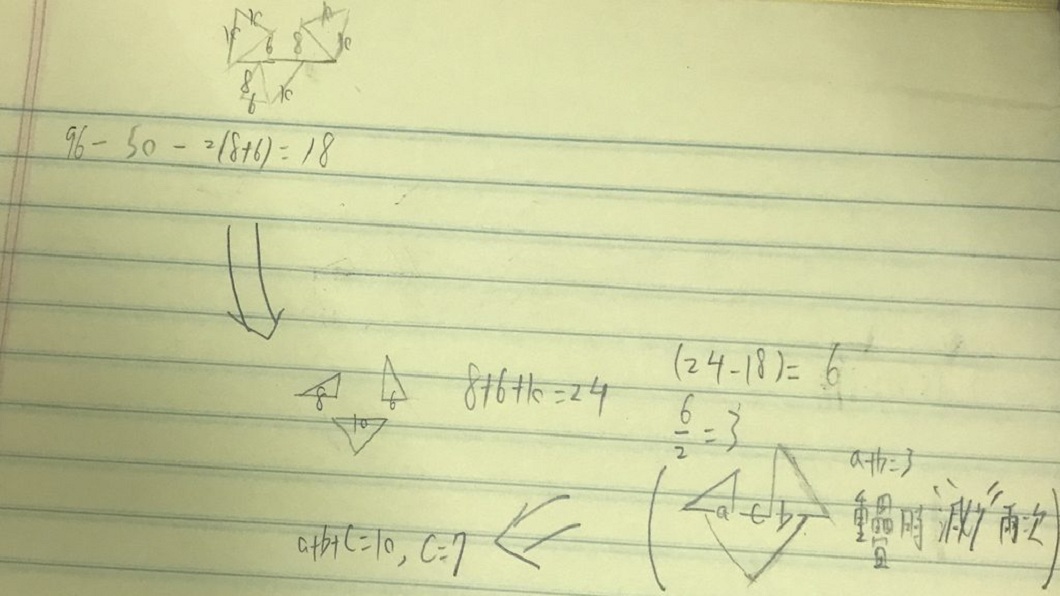 10 10
10 6 8 10
8 6 10
96 - 50 - 2(8+6) = 18
(24-18) = 6
8 6 8+6+10=24
10
6/2 = 3
a+b=3
a c b 重疊時"減少"兩次
a+b+c=10, c=7